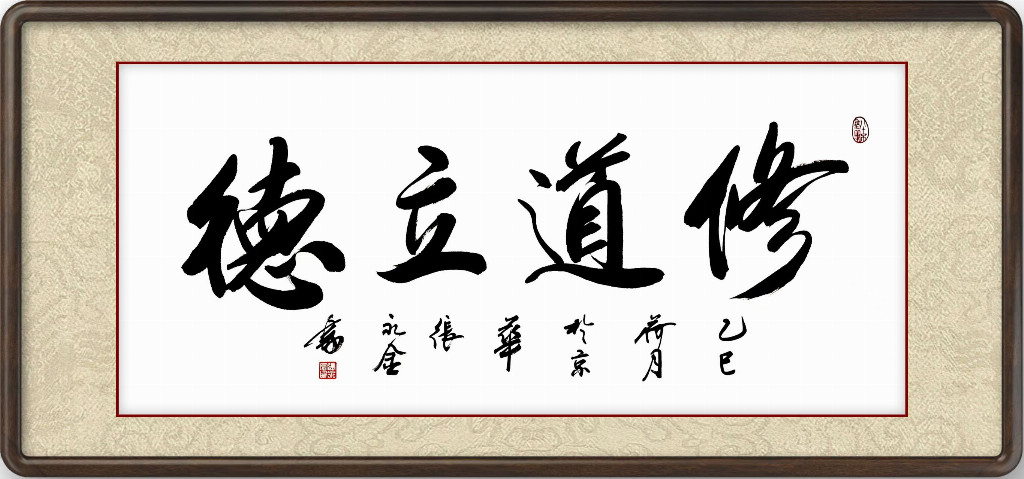 修道立德
乙巳
荷月
於京
華
張
永金
書